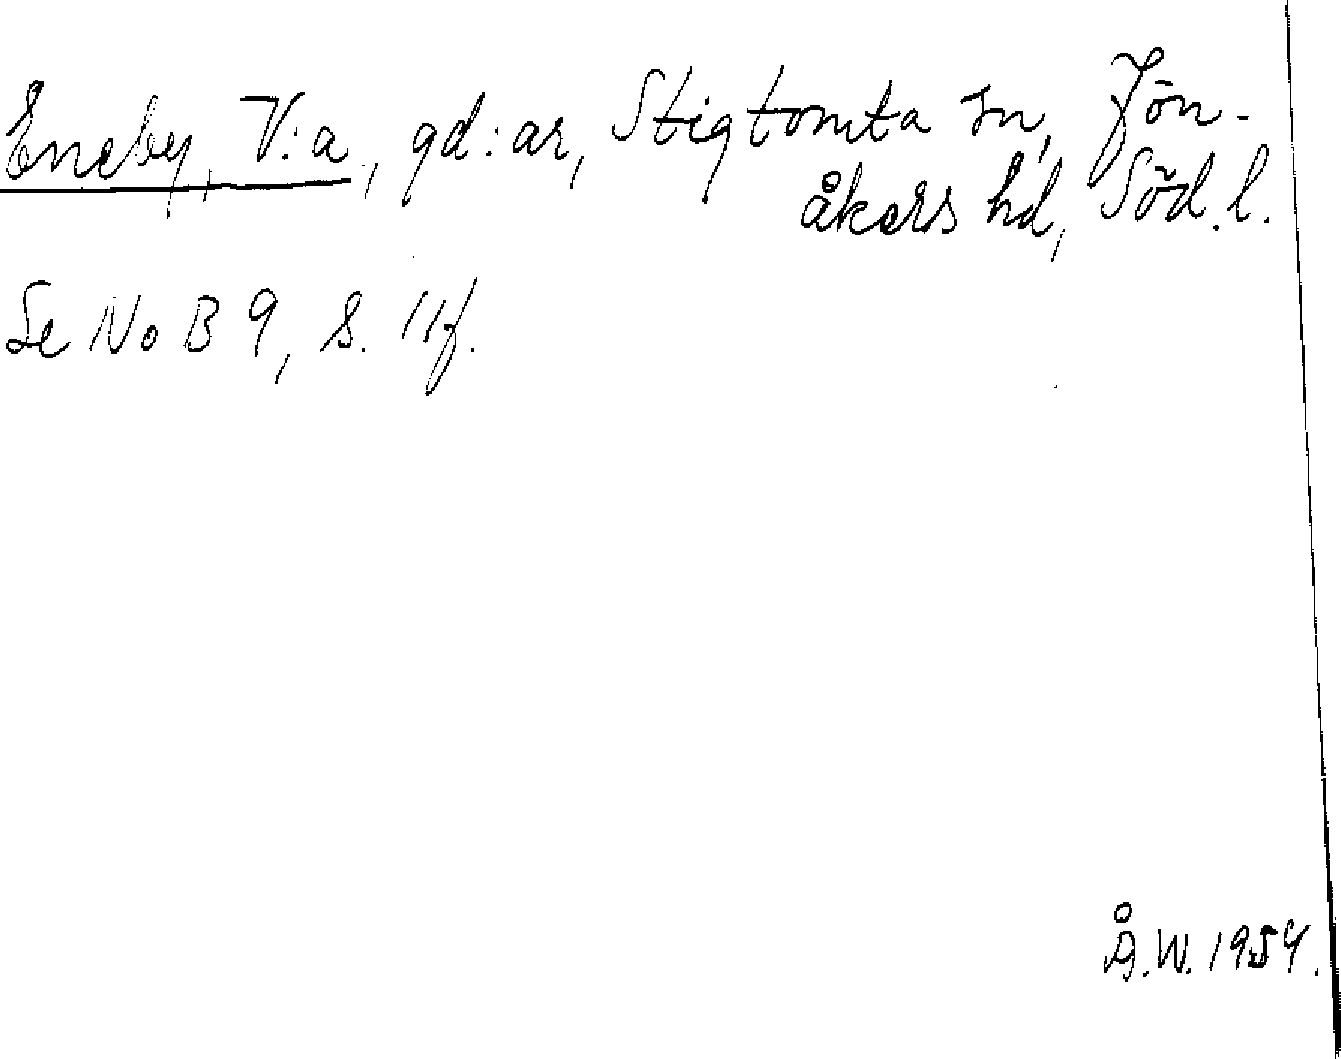 Eneby, V:a, gd:ar, Stigtomta sn, Jön-
åkers hd, Söd.l.
Se NoB 9, s. 11f.
Å.W. 1954.